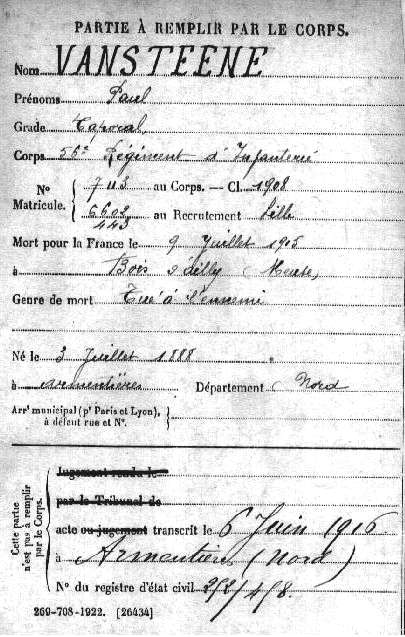 PARTIE À REMPLIR PAR LE CORPS.
Nom VANSTEENE
Prénoms Paul
Grade Caporal
Corps 56e Régiment d'Infanterie
No Matricule. 703 au Corps. — Cl. 1908
6602 443 au Recrutement Lille
Mort pour la France le 9 Juillet 1905
à Bois d'Ailly (Meuse)
Genre de mort Tué à l'ennemi
Né le 3 Juillet 1888
à Armentières Département Nord
Arrt municipal (pr Paris et Lyon),
à défaut rue et No.
Cette partie n'est pas à remplir par le Corps.
Jugement rendu le
par le Tribunal de
acte ou jugement transcrit le 6 Juin 1916
à Armentières (Nord)
No du registre d'état civil
269-708-1922. [26434]